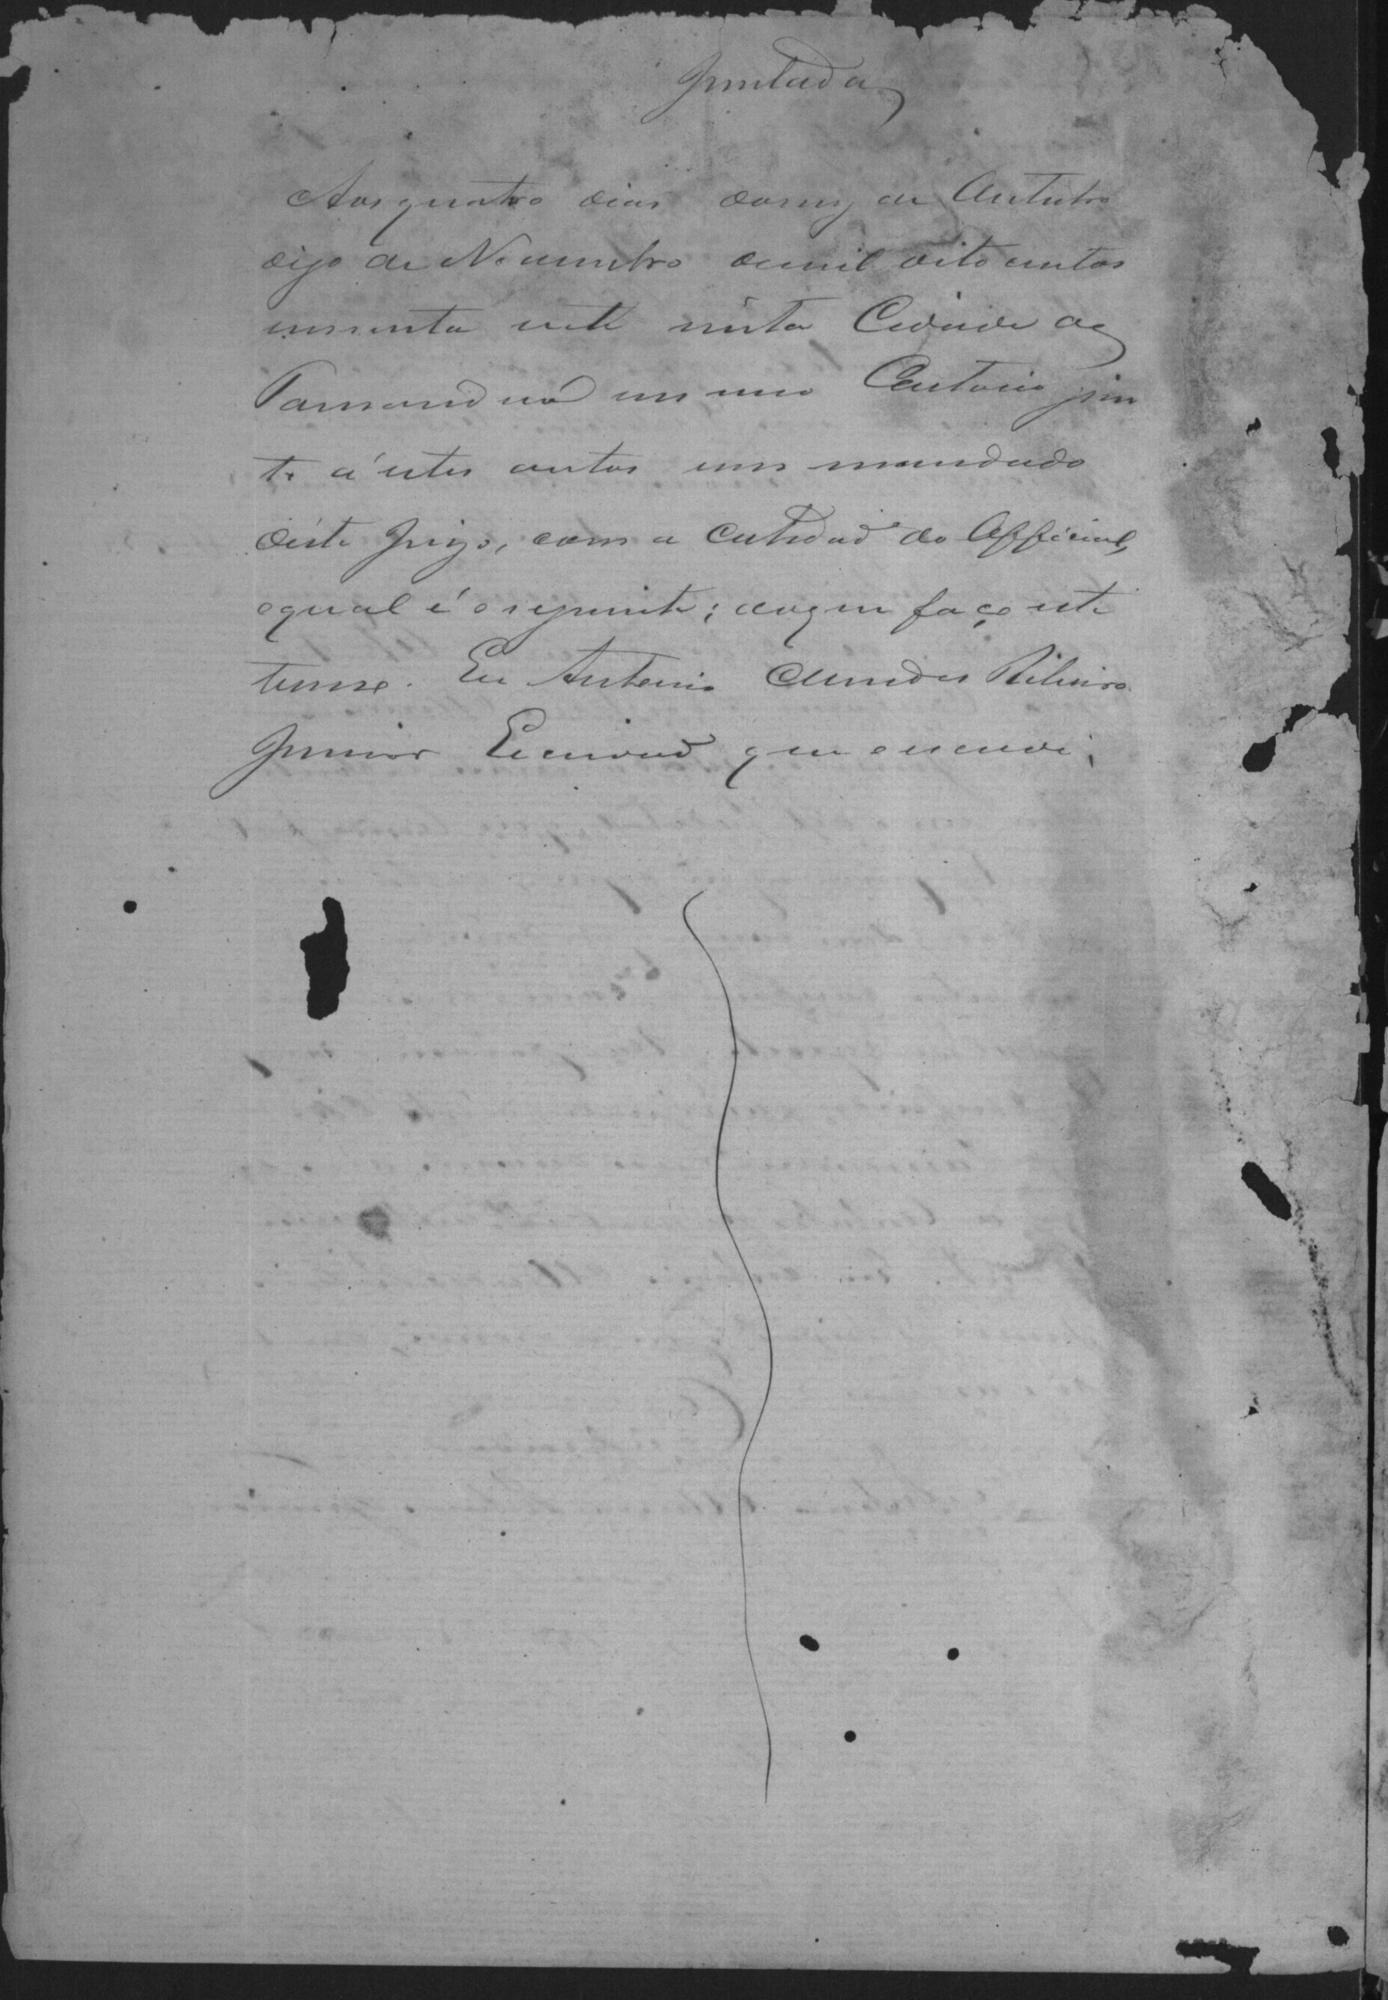 Juntada
Aos quatro dias do mez de Outubro
digo de Novembro de mil oito centos
sessenta e sete nésta Cidade de
Tamanduá em meo Cartorio jun
to á estes autos um mandado
déste Juizo, com a certidaõ do Official,
o qual é o seguinte; do que faço este
termo. Eu Antonio Ribeiro
Junior Escrivaõ que o escrevi;